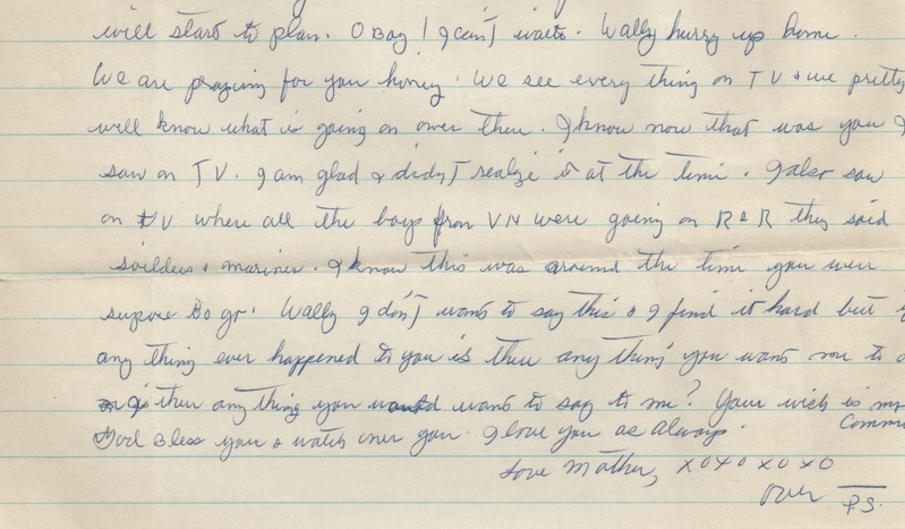 will start to plan. O Boy! I can't waite. Wally hurry up home.
We are praying for you honey. We see every thing on TV & we pretty
will know what is going on over there. I know now that was you I
saw on TV. I am glad I didn't realize it at the time. I also saw
on TV where all the boys from VN were going on R & R they said
soilders & marines. I know this was around the time you were
supose to go. Wally I don't want to say this & I find it hard but
any thing ever happened to you is there any thing you want me to
is there any thing you would want to say to me? Your wish is my
Comm
God Bless you & watch over you. I love you as Always.
Love Mother, xoxo xoxo
Over P.S.